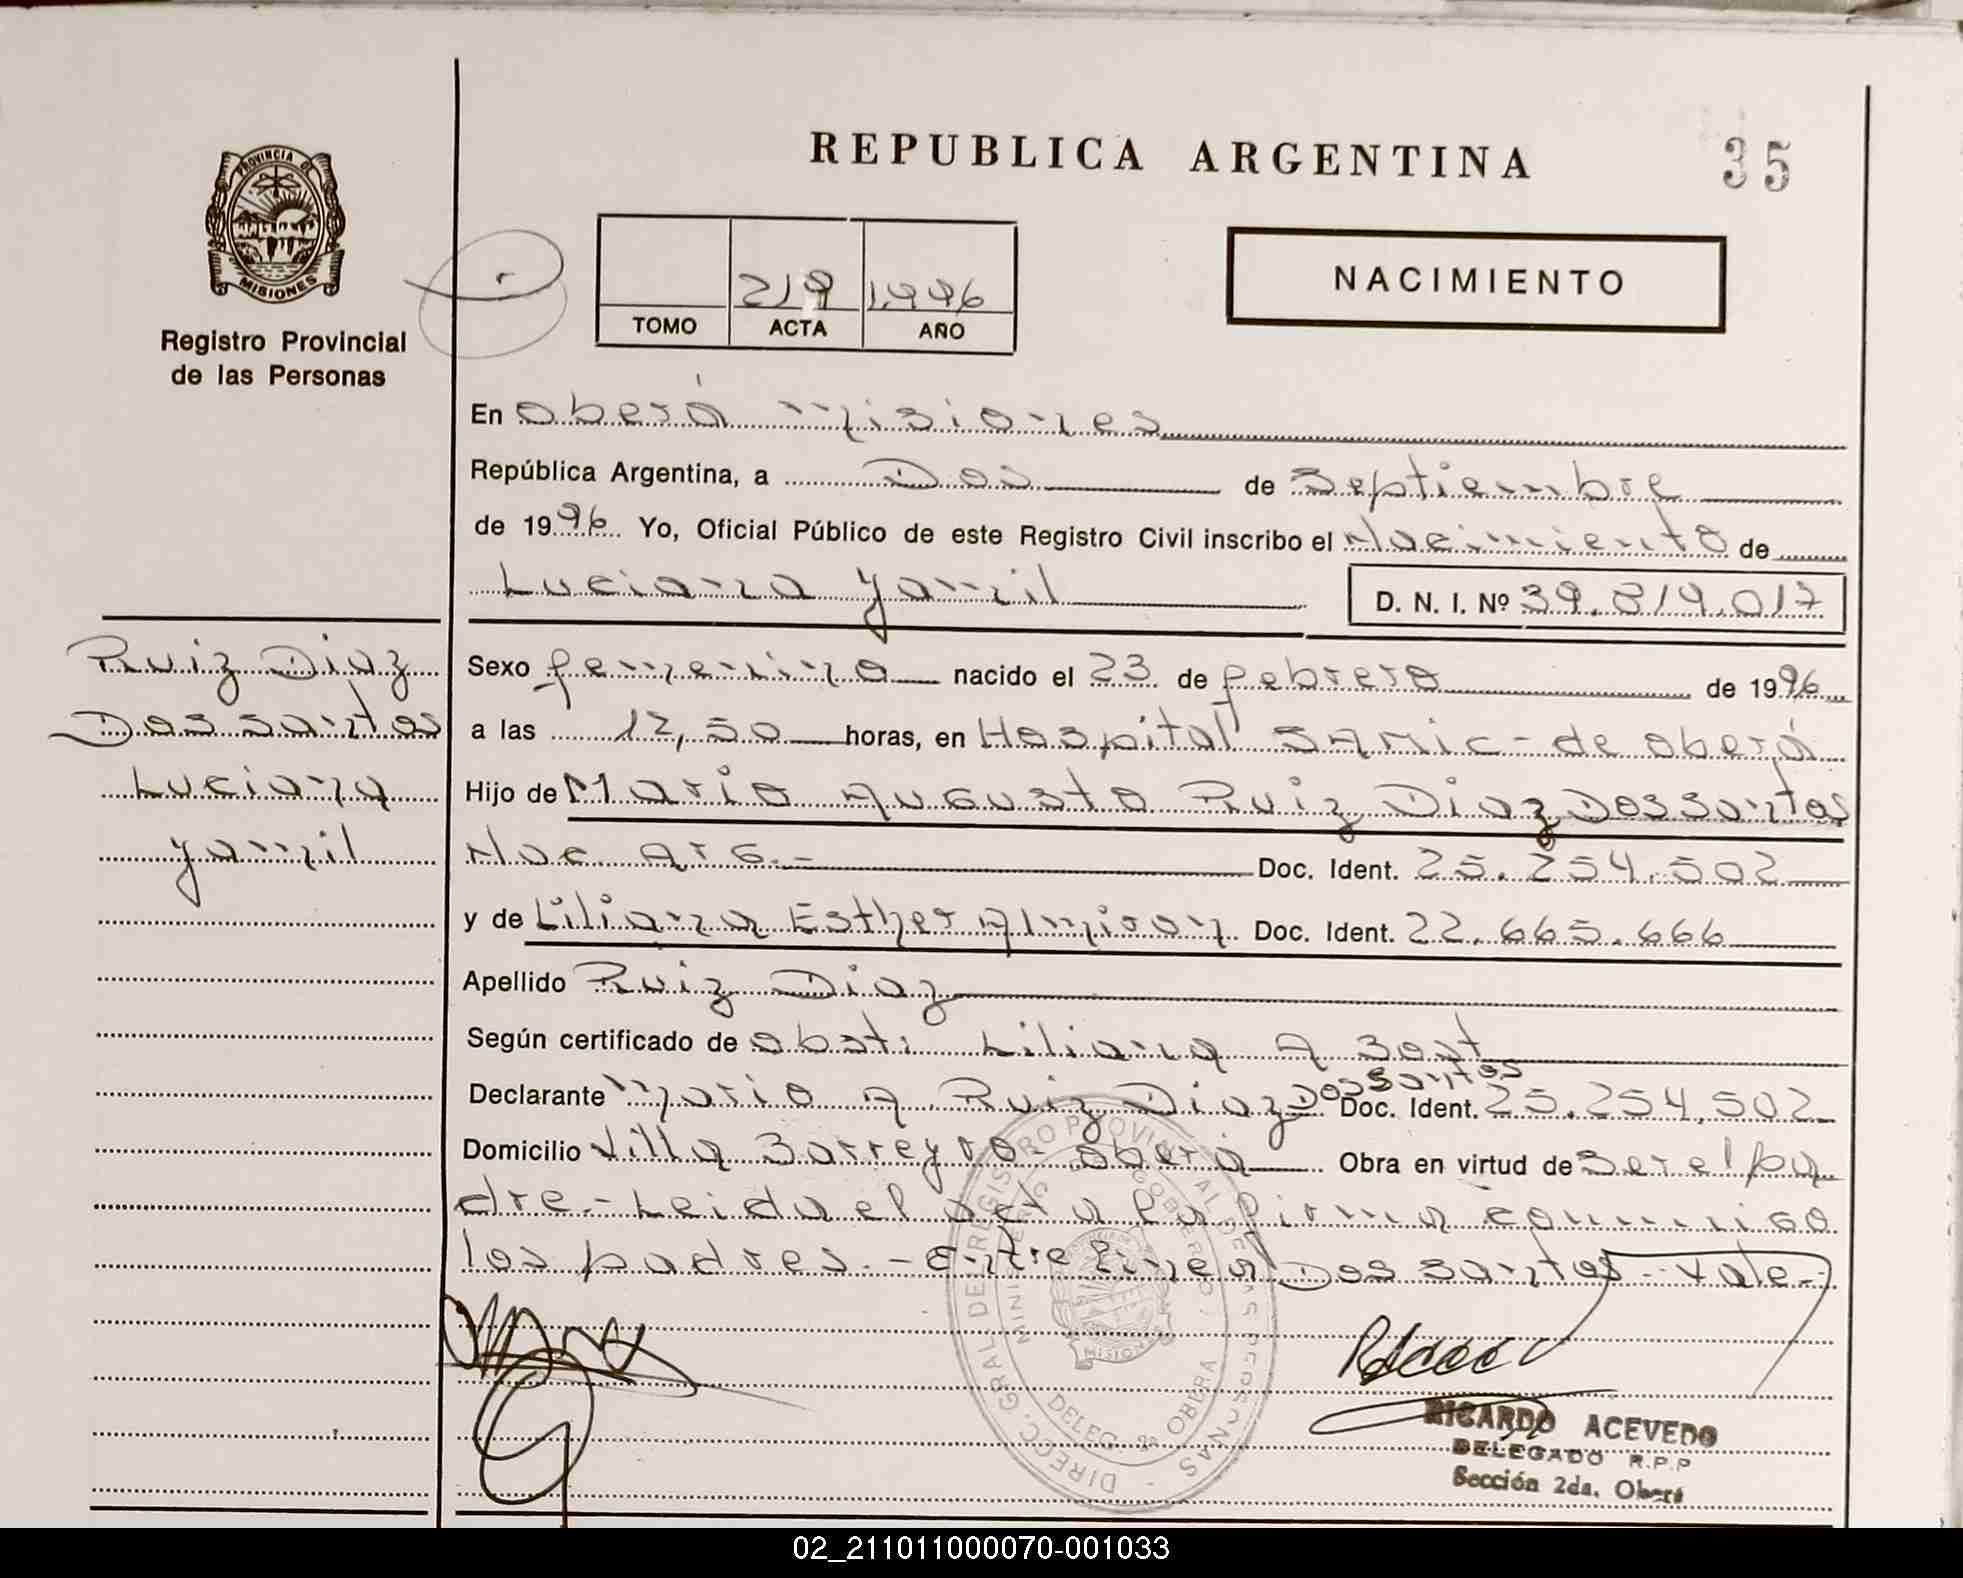 REPUBLICA ARGENTINA
35
PROVINCIA DE
MISIONES
Registro Provincial
de las Personas
219 1.996
TOMO ACTA AÑO
NACIMIENTO
En oberá misiones
República Argentina, a Dos de Septiembre
de 1996 Yo, Oficial Público de este Registro Civil inscribo el Nacimiento de
Luciana Yamil D. N. I. Nº 39.819.017
Ruiz Diaz
Dos santos
Luciana
Yamil
Sexo femenino nacido el 23 de febrero de 1996
a las 12,50 horas, en Hospital SAMIC - de oberá
Hijo de Mario Augusto Ruiz Diaz Dos santos
Nac. Arg. - Doc. Ident. 25.254.502
y de Liliana Esther Almiron Doc. Ident. 22.665.666
Apellido Ruiz Diaz
Según certificado de obst: Liliana A Bost
Declarante Mario A. Ruiz Diaz Dos santos Doc. Ident. 25.254.502
Domicilio Villa Barreyro oberá Obra en virtud de ser el pa
dre.- Leida el acta la firma conmigo
los padres.- Entre linea Dos santos - Vale-
DIRECC. GRAL. DE REGISTRO PROVINCIAL DE LAS PERSONAS
GOBIERNO
MISIONES
DELEG. 2ª OBERA
RICARDO ACEVEDO
DELEGADO R.P.P
Sección 2da. Oberá
02_211011000070-001033